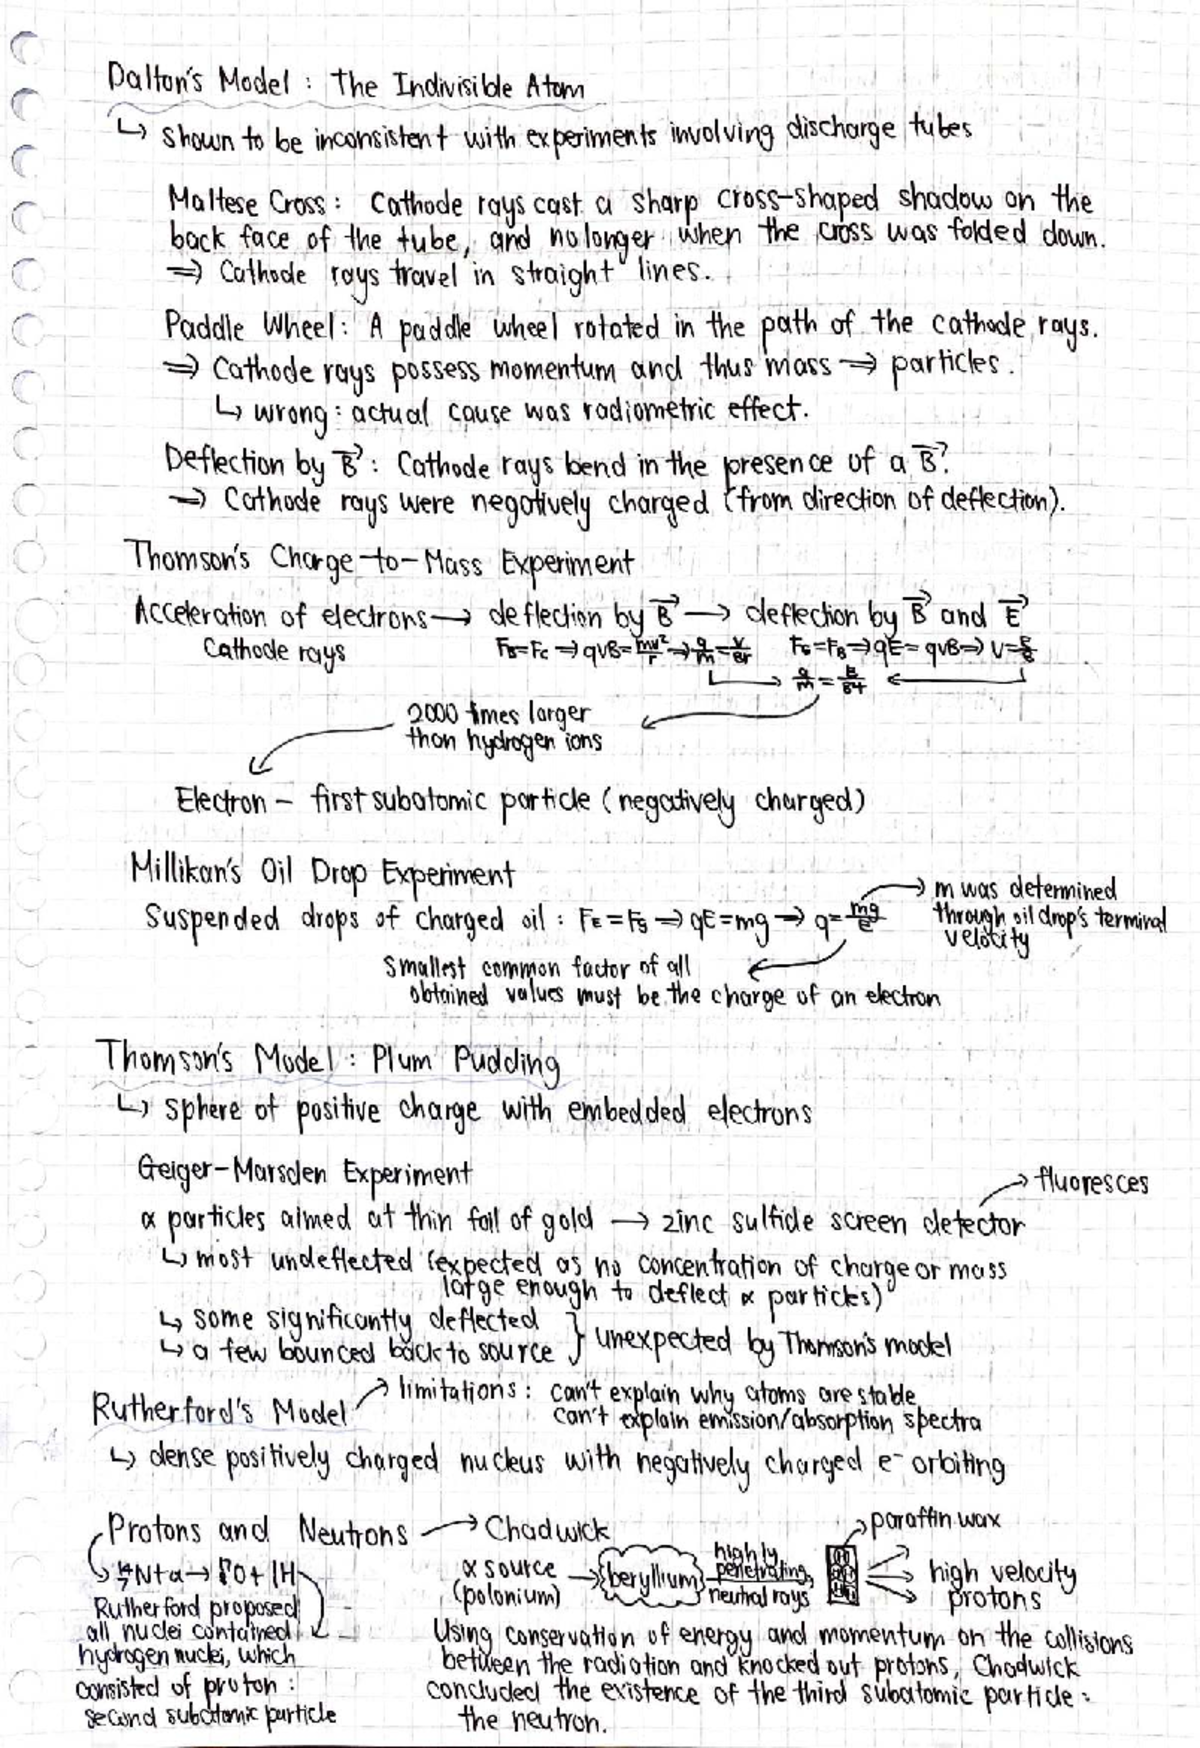 Dalton's Model : The Indivisible Atom
↳ shown to be inconsistent with experiments involving discharge tubes
Maltese Cross : Cathode rays cast a sharp cross-shaped shadow on the
back face of the tube, and no longer when the cross was folded down.
⇒ Cathode rays travel in straight lines.
Paddle Wheel : A paddle wheel rotated in the path of the cathode rays.
⇒ Cathode rays possess momentum and thus mass ⇒ particles.
↳ wrong : actual cause was radiometric effect.
Deflection by B⃗ : Cathode rays bend in the presence of a B⃗.
⇒ Cathode rays were negatively charged (from direction of deflection).
Thomson's Charge-to-Mass Experiment
Acceleration of electrons → deflection by B⃗ → deflection by B⃗ and E⃗
Cathode rays FB=Fc ⇒ qvB=mv²/r ⇒ q/m=v/Br FE=FB ⇒ qE=qvB ⇒ v=E/B
2000 times larger
than hydrogen ions
Electron – first subatomic particle (negatively charged)
Millikan's Oil Drop Experiment
Suspended drops of charged oil : FE=Fg ⇒ qE=mg ⇒ q=mg/E → m was determined
through oil drop's terminal
velocity
Smallest common factor of all
obtained values must be the charge of an electron
Thomson's Model : Plum Pudding
↳ sphere of positive charge with embedded electrons
Geiger-Marsden Experiment
→ fluoresces
α particles aimed at thin foil of gold → zinc sulfide screen detector
↳ most undeflected (expected as no concentration of charge or mass
large enough to deflect α particles)
↳ some significantly deflected
↳ a few bounced back to source } unexpected by Thomson's model
Rutherford's Model → limitations : can't explain why atoms are stable
can't explain emission/absorption spectra
↳ dense positively charged nucleus with negatively charged e⁻ orbiting
Protons and Neutrons → Chadwick
→ paraffin wax
N+α → O+ H
Rutherford proposed
all nuclei contained
hydrogen nuclei, which
consisted of proton :
second subatomic particle
α source
(polonium)
→ beryllium
highly
penetrating,
neutral rays
high velocity
protons
Using conservation of energy and momentum on the collisions
between the radiation and knocked out protons, Chadwick
concluded the existence of the third subatomic particle :
the neutron.